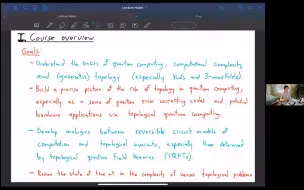 I. Course overview
Goals:
- Understand the basics of quantum computing, computational complexity
and (geometric) topology (especially knots and 3-manifolds)
- Build a precise picture of the role of topology in quantum computing,
especially as a source of quantum error correcting codes and potential
hardware applications via topological quantum computing.
- Develop analogies between reversible circuit models of
computation and topological invariants, especially those determined
by topological quantum field theories (TQFTs).
- Review the state of the art in the complexity of various topological problems